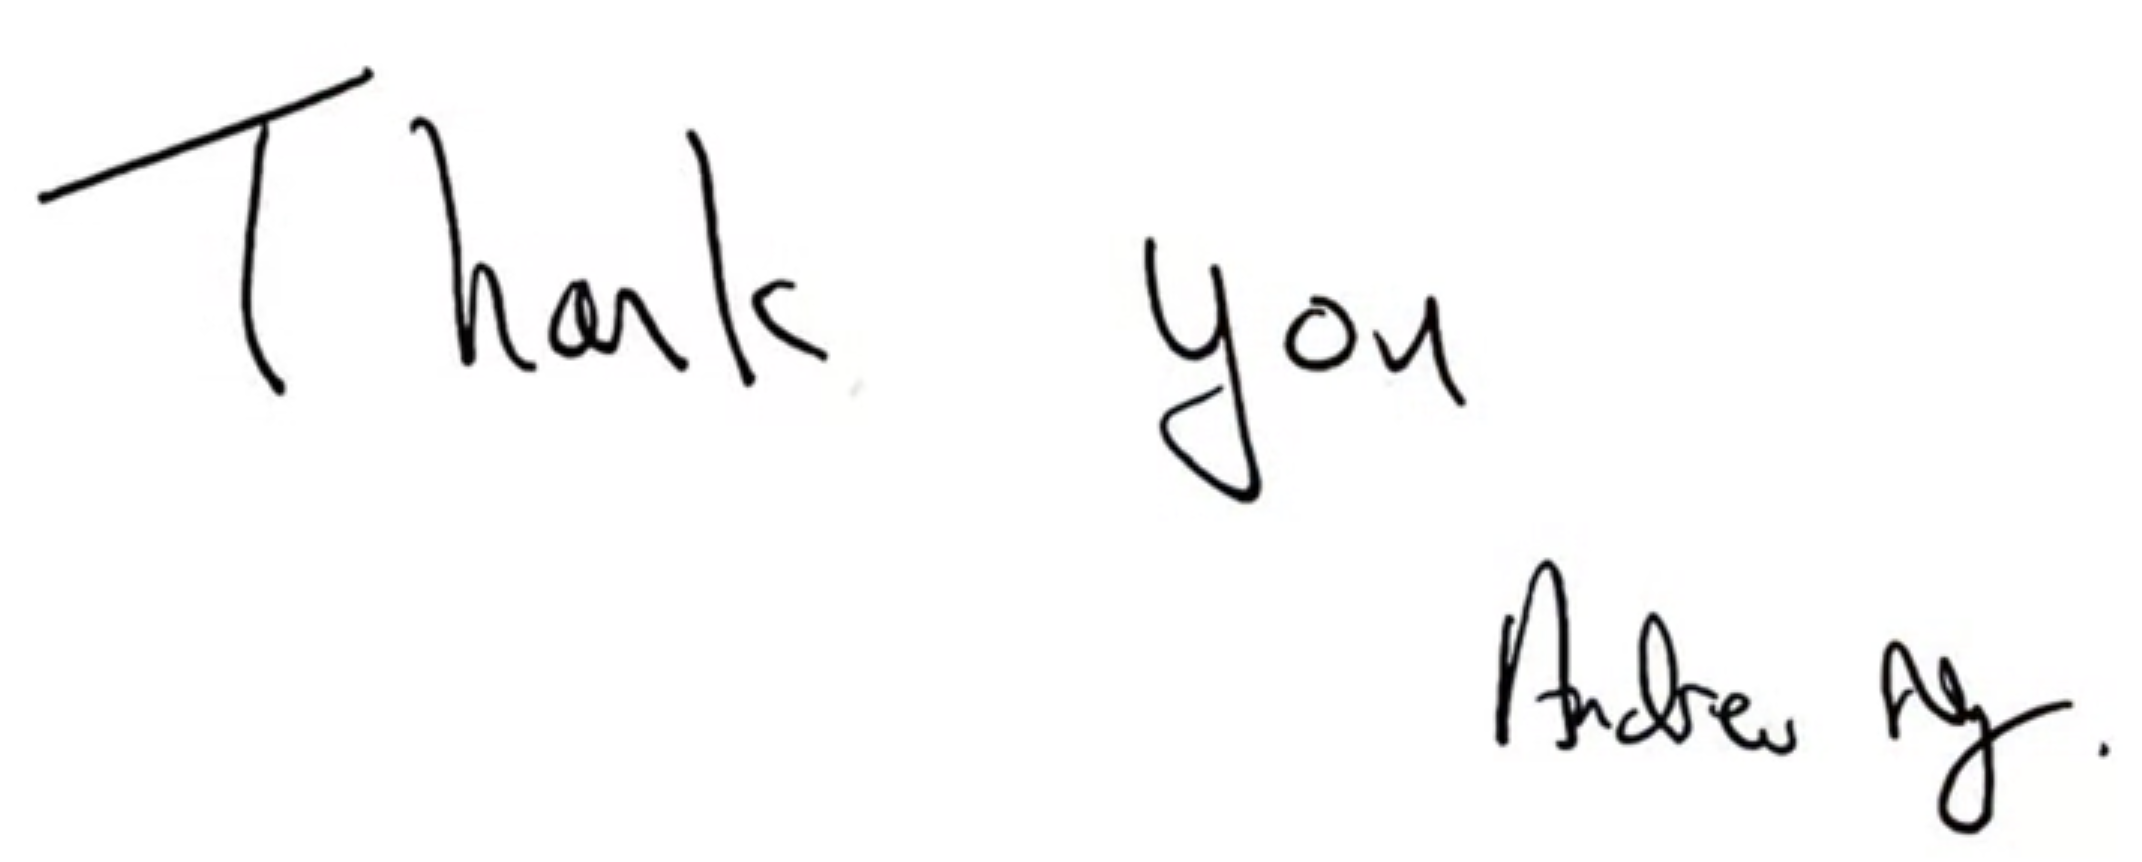 Thank you
Andrew Ng.